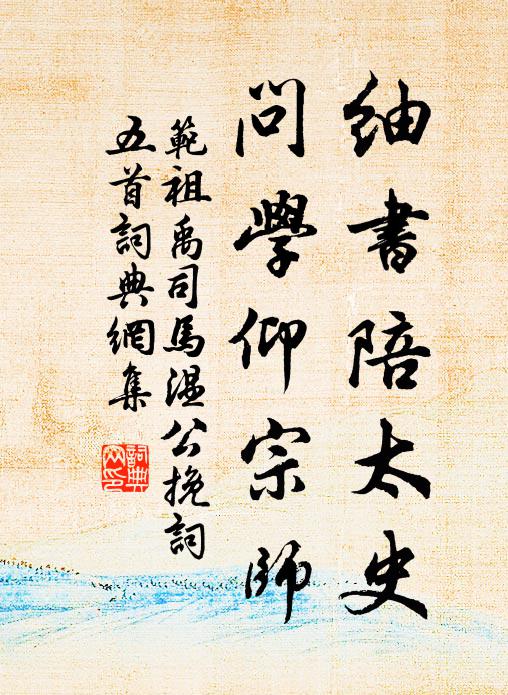 紬書陪太史
問學仰宗師
範祖禹司馬溫公挽詞
五首詞典網集
詞典
网印